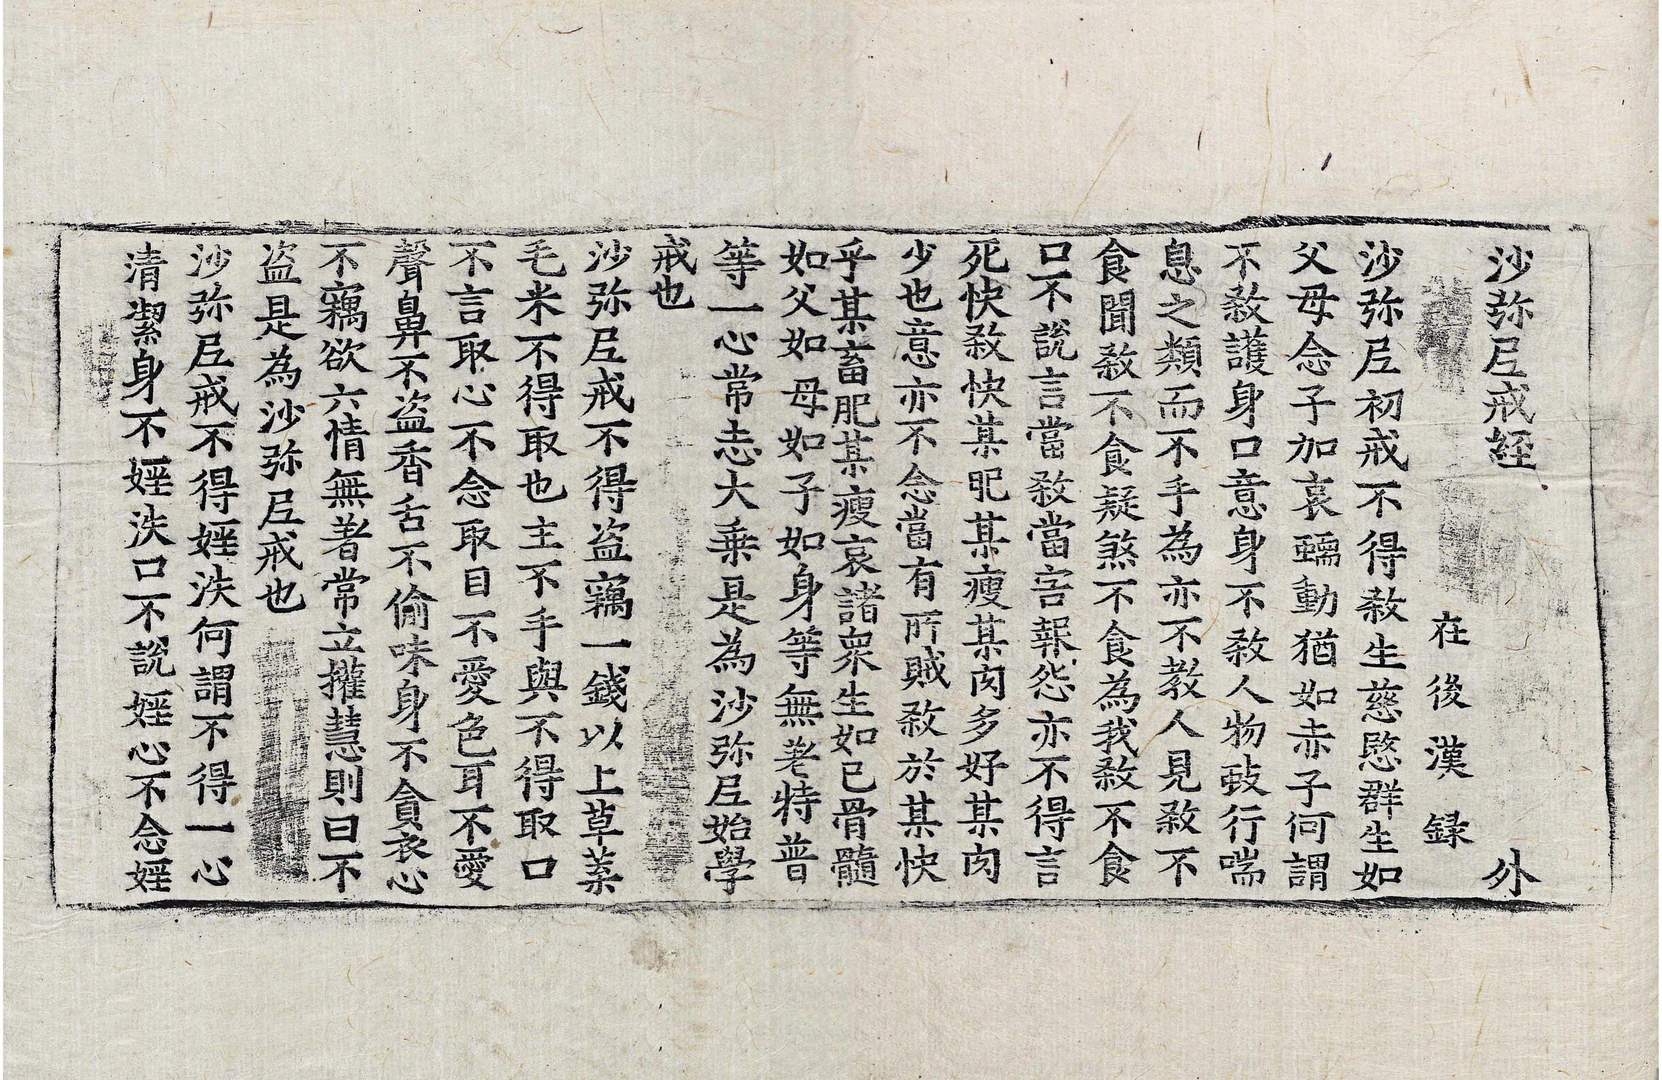 沙弥尼戒経 外
在後漢録
沙弥尼初戒不得煞生慈愍群生如
父母念子加哀蠕動猶如赤子何謂
不煞護身口意身不煞人物蚑行喘
息之類而不手為亦不教人見煞不
食聞煞不食疑煞不食為我煞不食
口不説言當煞當害報怨亦不得言
死快煞快某肥某瘦某肉多好某肉
少也意亦不念當有所賊煞於某快
乎某畜肥某瘦哀諸衆生如已骨髓
如父如母如子如身等無差特普
等一心常志大乗是為沙弥尼始學
戒也
沙弥尼戒不得盗竊一錢以上草菜
毛米不得取也主不手與不得取口
不言取心不念取目不愛色耳不愛
聲鼻不盗香舌不偷味身不貪衣心
不竊欲六情無著常立權慧則曰不
盗是為沙弥尼戒也
沙弥尼戒不得婬泆何謂不得一心
清潔身不婬泆口不説婬心不念婬